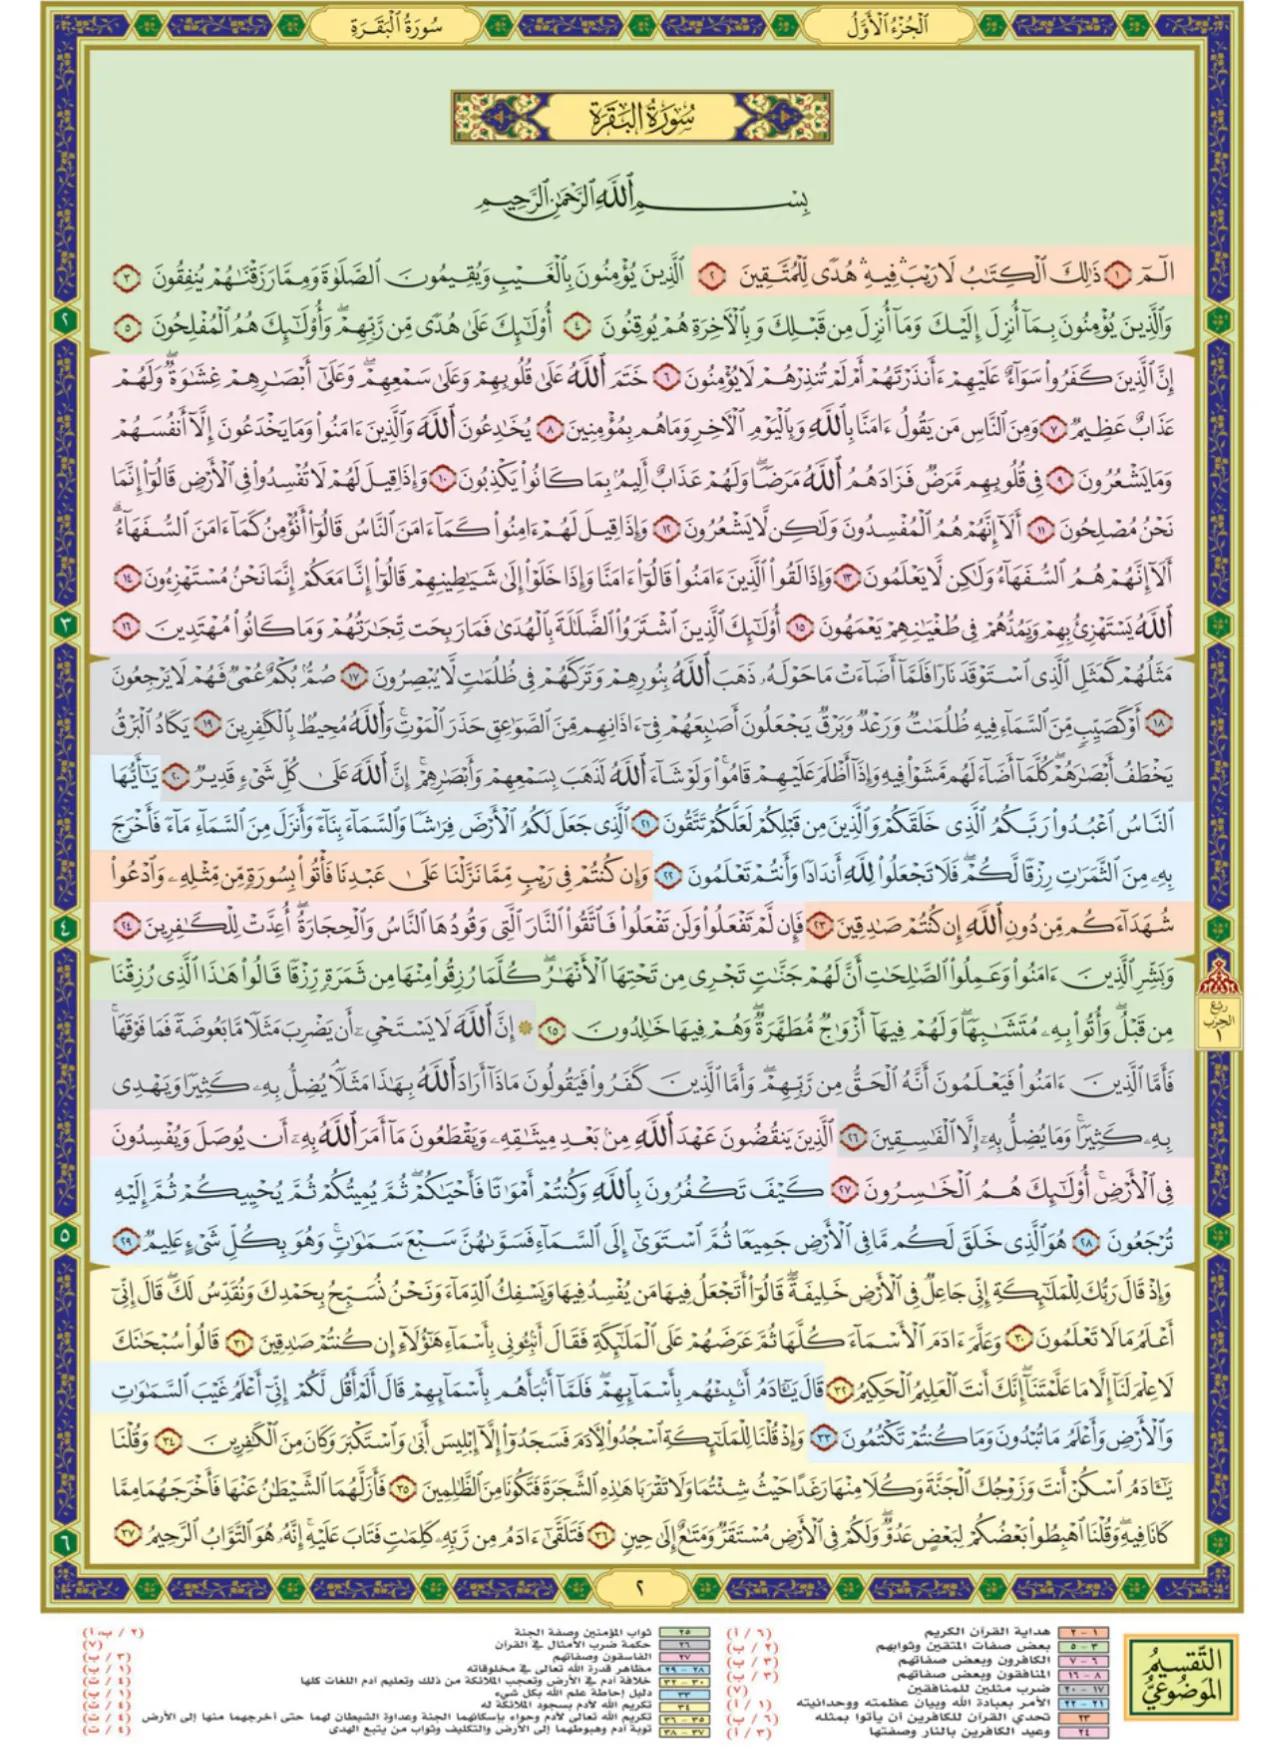 الجُزءُ الأَوَّلُ
سُورَةُ البَقَرَةِ
سُورَةُ البَقَرَةِ
بِسۡمِ ٱللَّهِ ٱلرَّحۡمَٰنِ ٱلرَّحِيمِ
الٓمٓ ١ ذَٰلِكَ ٱلۡكِتَٰبُ لَا رَيۡبَۛ فِيهِۛ هُدٗى لِّلۡمُتَّقِينَ ٢ ٱلَّذِينَ يُؤۡمِنُونَ بِٱلۡغَيۡبِ وَيُقِيمُونَ ٱلصَّلَوٰةَ وَمِمَّا رَزَقۡنَٰهُمۡ يُنفِقُونَ ٣
وَٱلَّذِينَ يُؤۡمِنُونَ بِمَآ أُنزِلَ إِلَيۡكَ وَمَآ أُنزِلَ مِن قَبۡلِكَ وَبِٱلۡأٓخِرَةِ هُمۡ يُوقِنُونَ ٤ أُوْلَٰٓئِكَ عَلَىٰ هُدٗى مِّن رَّبِّهِمۡۖ وَأُوْلَٰٓئِكَ هُمُ ٱلۡمُفۡلِحُونَ ٥
إِنَّ ٱلَّذِينَ كَفَرُواْ سَوَآءٌ عَلَيۡهِمۡ ءَأَنذَرۡتَهُمۡ أَمۡ لَمۡ تُنذِرۡهُمۡ لَا يُؤۡمِنُونَ ٦ خَتَمَ ٱللَّهُ عَلَىٰ قُلُوبِهِمۡ وَعَلَىٰ سَمۡعِهِمۡۖ وَعَلَىٰٓ أَبۡصَٰرِهِمۡ غِشَٰوَةٞۖ وَلَهُمۡ
عَذَابٌ عَظِيمٞ ٧ وَمِنَ ٱلنَّاسِ مَن يَقُولُ ءَامَنَّا بِٱللَّهِ وَبِٱلۡيَوۡمِ ٱلۡأٓخِرِ وَمَا هُم بِمُؤۡمِنِينَ ٨ يُخَٰدِعُونَ ٱللَّهَ وَٱلَّذِينَ ءَامَنُواْ وَمَا يَخۡدَعُونَ إِلَّآ أَنفُسَهُمۡ
وَمَا يَشۡعُرُونَ ٩ فِي قُلُوبِهِم مَّرَضٞ فَزَادَهُمُ ٱللَّهُ مَرَضٗاۖ وَلَهُمۡ عَذَابٌ أَلِيمُۢ بِمَا كَانُواْ يَكۡذِبُونَ ١٠ وَإِذَا قِيلَ لَهُمۡ لَا تُفۡسِدُواْ فِي ٱلۡأَرۡضِ قَالُوٓاْ إِنَّمَا
نَحۡنُ مُصۡلِحُونَ ١١ أَلَآ إِنَّهُمۡ هُمُ ٱلۡمُفۡسِدُونَ وَلَٰكِن لَّا يَشۡعُرُونَ ١٢ وَإِذَا قِيلَ لَهُمۡ ءَامِنُواْ كَمَآ ءَامَنَ ٱلنَّاسُ قَالُوٓاْ أَنُؤۡمِنُ كَمَآ ءَامَنَ ٱلسُّفَهَآءُۗ
أَلَآ إِنَّهُمۡ هُمُ ٱلسُّفَهَآءُ وَلَٰكِن لَّا يَعۡلَمُونَ ١٣ وَإِذَا لَقُواْ ٱلَّذِينَ ءَامَنُواْ قَالُوٓاْ ءَامَنَّا وَإِذَا خَلَوۡاْ إِلَىٰ شَيَٰطِينِهِمۡ قَالُوٓاْ إِنَّا مَعَكُمۡ إِنَّمَا نَحۡنُ مُسۡتَهۡزِءُونَ ١٤
ٱللَّهُ يَسۡتَهۡزِئُ بِهِمۡ وَيَمُدُّهُمۡ فِي طُغۡيَٰنِهِمۡ يَعۡمَهُونَ ١٥ أُوْلَٰٓئِكَ ٱلَّذِينَ ٱشۡتَرَوُاْ ٱلضَّلَٰلَةَ بِٱلۡهُدَىٰ فَمَا رَبِحَت تِّجَٰرَتُهُمۡ وَمَا كَانُواْ مُهۡتَدِينَ ١٦
مَثَلُهُمۡ كَمَثَلِ ٱلَّذِي ٱسۡتَوۡقَدَ نَارٗا فَلَمَّآ أَضَآءَتۡ مَا حَوۡلَهُۥ ذَهَبَ ٱللَّهُ بِنُورِهِمۡ وَتَرَكَهُمۡ فِي ظُلُمَٰتٖ لَّا يُبۡصِرُونَ ١٧ صُمُّۢ بُكۡمٌ عُمۡيٞ فَهُمۡ لَا يَرۡجِعُونَ
١٨ أَوۡ كَصَيِّبٖ مِّنَ ٱلسَّمَآءِ فِيهِ ظُلُمَٰتٞ وَرَعۡدٞ وَبَرۡقٞ يَجۡعَلُونَ أَصَٰبِعَهُمۡ فِيٓ ءَاذَانِهِم مِّنَ ٱلصَّوَٰعِقِ حَذَرَ ٱلۡمَوۡتِۚ وَٱللَّهُ مُحِيطُۢ بِٱلۡكَٰفِرِينَ ١٩ يَكَادُ ٱلۡبَرۡقُ
يَخۡطَفُ أَبۡصَٰرَهُمۡۖ كُلَّمَآ أَضَآءَ لَهُم مَّشَوۡاْ فِيهِ وَإِذَآ أَظۡلَمَ عَلَيۡهِمۡ قَامُواْۚ وَلَوۡ شَآءَ ٱللَّهُ لَذَهَبَ بِسَمۡعِهِمۡ وَأَبۡصَٰرِهِمۡۚ إِنَّ ٱللَّهَ عَلَىٰ كُلِّ شَيۡءٖ قَدِيرٞ ٢٠ يَٰٓأَيُّهَا
ٱلنَّاسُ ٱعۡبُدُواْ رَبَّكُمُ ٱلَّذِي خَلَقَكُمۡ وَٱلَّذِينَ مِن قَبۡلِكُمۡ لَعَلَّكُمۡ تَتَّقُونَ ٢١ ٱلَّذِي جَعَلَ لَكُمُ ٱلۡأَرۡضَ فِرَٰشٗا وَٱلسَّمَآءَ بِنَآءٗ وَأَنزَلَ مِنَ ٱلسَّمَآءِ مَآءٗ فَأَخۡرَجَ
بِهِۦ مِنَ ٱلثَّمَرَٰتِ رِزۡقٗا لَّكُمۡۖ فَلَا تَجۡعَلُواْ لِلَّهِ أَندَادٗا وَأَنتُمۡ تَعۡلَمُونَ ٢٢ وَإِن كُنتُمۡ فِي رَيۡبٖ مِّمَّا نَزَّلۡنَا عَلَىٰ عَبۡدِنَا فَأۡتُواْ بِسُورَةٖ مِّن مِّثۡلِهِۦ وَٱدۡعُواْ
شُهَدَآءَكُم مِّن دُونِ ٱللَّهِ إِن كُنتُمۡ صَٰدِقِينَ ٢٣ فَإِن لَّمۡ تَفۡعَلُواْ وَلَن تَفۡعَلُواْ فَٱتَّقُواْ ٱلنَّارَ ٱلَّتِي وَقُودُهَا ٱلنَّاسُ وَٱلۡحِجَارَةُۖ أُعِدَّتۡ لِلۡكَٰفِرِينَ ٢٤
وَبَشِّرِ ٱلَّذِينَ ءَامَنُواْ وَعَمِلُواْ ٱلصَّٰلِحَٰتِ أَنَّ لَهُمۡ جَنَّٰتٖ تَجۡرِي مِن تَحۡتِهَا ٱلۡأَنۡهَٰرُۖ كُلَّمَا رُزِقُواْ مِنۡهَا مِن ثَمَرَةٖ رِّزۡقٗا قَالُواْ هَٰذَا ٱلَّذِي رُزِقۡنَا
مِن قَبۡلُۖ وَأُتُواْ بِهِۦ مُتَشَٰبِهٗاۖ وَلَهُمۡ فِيهَآ أَزۡوَٰجٞ مُّطَهَّرَةٞۖ وَهُمۡ فِيهَا خَٰلِدُونَ ٢٥ ۞ إِنَّ ٱللَّهَ لَا يَسۡتَحۡيِۦٓ أَن يَضۡرِبَ مَثَلٗا مَّا بَعُوضَةٗ فَمَا فَوۡقَهَاۚ
فَأَمَّا ٱلَّذِينَ ءَامَنُواْ فَيَعۡلَمُونَ أَنَّهُ ٱلۡحَقُّ مِن رَّبِّهِمۡۖ وَأَمَّا ٱلَّذِينَ كَفَرُواْ فَيَقُولُونَ مَاذَآ أَرَادَ ٱللَّهُ بِهَٰذَا مَثَلٗاۘ يُضِلُّ بِهِۦ كَثِيرٗا وَيَهۡدِي
بِهِۦ كَثِيرٗاۚ وَمَا يُضِلُّ بِهِۦٓ إِلَّا ٱلۡفَٰسِقِينَ ٢٦ ٱلَّذِينَ يَنقُضُونَ عَهۡدَ ٱللَّهِ مِنۢ بَعۡدِ مِيثَٰقِهِۦ وَيَقۡطَعُونَ مَآ أَمَرَ ٱللَّهُ بِهِۦٓ أَن يُوصَلَ وَيُفۡسِدُونَ
فِي ٱلۡأَرۡضِۚ أُوْلَٰٓئِكَ هُمُ ٱلۡخَٰسِرُونَ ٢٧ كَيۡفَ تَكۡفُرُونَ بِٱللَّهِ وَكُنتُمۡ أَمۡوَٰتٗا فَأَحۡيَٰكُمۡۖ ثُمَّ يُمِيتُكُمۡ ثُمَّ يُحۡيِيكُمۡ ثُمَّ إِلَيۡهِ
تُرۡجَعُونَ ٢٨ هُوَ ٱلَّذِي خَلَقَ لَكُم مَّا فِي ٱلۡأَرۡضِ جَمِيعٗا ثُمَّ ٱسۡتَوَىٰٓ إِلَى ٱلسَّمَآءِ فَسَوَّىٰهُنَّ سَبۡعَ سَمَٰوَٰتٖۚ وَهُوَ بِكُلِّ شَيۡءٍ عَلِيمٞ ٢٩
وَإِذۡ قَالَ رَبُّكَ لِلۡمَلَٰٓئِكَةِ إِنِّي جَاعِلٞ فِي ٱلۡأَرۡضِ خَلِيفَةٗۖ قَالُوٓاْ أَتَجۡعَلُ فِيهَا مَن يُفۡسِدُ فِيهَا وَيَسۡفِكُ ٱلدِّمَآءَ وَنَحۡنُ نُسَبِّحُ بِحَمۡدِكَ وَنُقَدِّسُ لَكَۖ قَالَ إِنِّيٓ
أَعۡلَمُ مَا لَا تَعۡلَمُونَ ٣٠ وَعَلَّمَ ءَادَمَ ٱلۡأَسۡمَآءَ كُلَّهَا ثُمَّ عَرَضَهُمۡ عَلَى ٱلۡمَلَٰٓئِكَةِ فَقَالَ أَنۢبِـُٔونِي بِأَسۡمَآءِ هَٰٓؤُلَآءِ إِن كُنتُمۡ صَٰدِقِينَ ٣١ قَالُواْ سُبۡحَٰنَكَ
لَا عِلۡمَ لَنَآ إِلَّا مَا عَلَّمۡتَنَآۖ إِنَّكَ أَنتَ ٱلۡعَلِيمُ ٱلۡحَكِيمُ ٣٢ قَالَ يَٰٓـَٔادَمُ أَنۢبِئۡهُم بِأَسۡمَآئِهِمۡۖ فَلَمَّآ أَنۢبَأَهُم بِأَسۡمَآئِهِمۡ قَالَ أَلَمۡ أَقُل لَّكُمۡ إِنِّيٓ أَعۡلَمُ غَيۡبَ ٱلسَّمَٰوَٰتِ
وَٱلۡأَرۡضِ وَأَعۡلَمُ مَا تُبۡدُونَ وَمَا كُنتُمۡ تَكۡتُمُونَ ٣٣ وَإِذۡ قُلۡنَا لِلۡمَلَٰٓئِكَةِ ٱسۡجُدُواْ لِأٓدَمَ فَسَجَدُوٓاْ إِلَّآ إِبۡلِيسَ أَبَىٰ وَٱسۡتَكۡبَرَ وَكَانَ مِنَ ٱلۡكَٰفِرِينَ ٣٤ وَقُلۡنَا
يَٰٓـَٔادَمُ ٱسۡكُنۡ أَنتَ وَزَوۡجُكَ ٱلۡجَنَّةَ وَكُلَا مِنۡهَا رَغَدًا حَيۡثُ شِئۡتُمَا وَلَا تَقۡرَبَا هَٰذِهِ ٱلشَّجَرَةَ فَتَكُونَا مِنَ ٱلظَّٰلِمِينَ ٣٥ فَأَزَلَّهُمَا ٱلشَّيۡطَٰنُ عَنۡهَا فَأَخۡرَجَهُمَا مِمَّا
كَانَا فِيهِۖ وَقُلۡنَا ٱهۡبِطُواْ بَعۡضُكُمۡ لِبَعۡضٍ عَدُوّٞۖ وَلَكُمۡ فِي ٱلۡأَرۡضِ مُسۡتَقَرّٞ وَمَتَٰعٌ إِلَىٰ حِينٖ ٣٦ فَتَلَقَّىٰٓ ءَادَمُ مِن رَّبِّهِۦ كَلِمَٰتٖ فَتَابَ عَلَيۡهِۚ إِنَّهُۥ هُوَ ٱلتَّوَّابُ ٱلرَّحِيمُ ٣٧
ربع
الحزب
١
٢
٣
٤
٥
٦
٢
التَّقسِيمُ
المَوضُوعِيُّ
١ - ٢ هداية القرآن الكريم (٦ / أ)
٣ - ٥ بعض صفات المتقين وثوابهم (٢ / ب)
٦ - ٧ الكافرون وبعض صفاتهم (٣ / ب)
٨ - ١٦ المنافقون وبعض صفاتهم (٣ / ب)
١٧ - ٢٠ ضرب مثلين للمنافقين (٧)
٢١ - ٢٢ الأمر بعبادة الله وبيان عظمته ووحدانيته (١ / أ)
٢٣ تحدي القرآن للكافرين أن يأتوا بمثله (٦ / ب)
٢٤ وعيد الكافرين بالنار وصفتها (٣ / أ)
٢٥ ثواب المؤمنين وصفة الجنة (٢ / ب، أ)
٢٦ حكمة ضرب الأمثال في القرآن (٧)
٢٧ الفاسقون وصفاتهم (٣ / ب)
٢٨ - ٢٩ مظاهر قدرة الله تعالى في مخلوقاته (١ / ب)
٣٠ - ٣٢ خلافة آدم في الأرض وتعجب الملائكة من ذلك وتعليم آدم اللغات كلها (٤ / ت)
٣٣ دليل إحاطة علم الله بكل شيء (١ / ب)
٣٤ تكريم الله لآدم بسجود الملائكة له (٤ / ت)
٣٥ - ٣٦ تكريم الله تعالى لآدم وحواء بإسكانهما الجنة وعداوة الشيطان لهما حتى أخرجهما منها إلى الأرض (٤ / ت)
٣٧ - ٣٨ توبة آدم وهبوطهما إلى الأرض والتكليف وثواب من يتبع الهدى (٤ / ت)